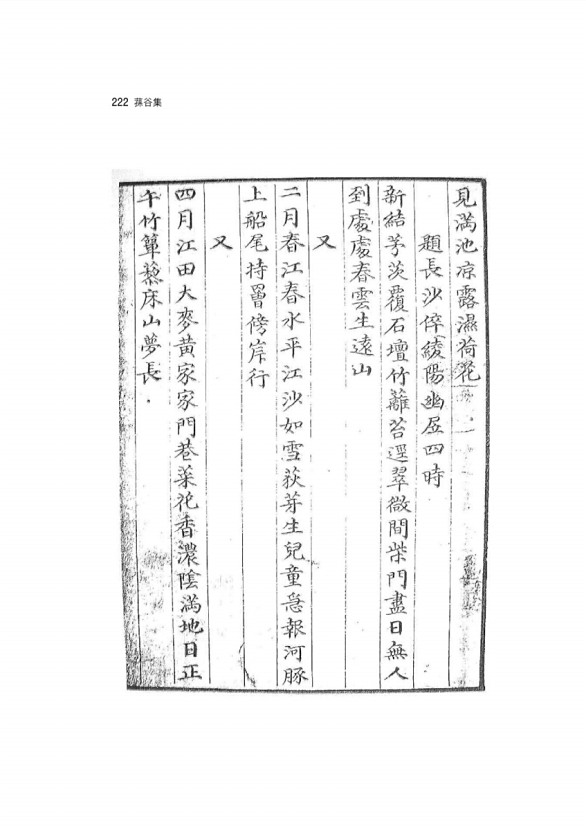 222 蓀谷集
見滿池凉露濕荷花
題長沙倅綾陽幽居四時
新結茅茨覆石壇竹籬苔逕翠微間柴門盡日無人
到處處春雲生遠山
又
二月春江春水平江沙如雪荻芽生兒童急報河豚
上船尾持罾傍岸行
又
四月江田大麥黃家家門巷菜花香濃陰滿地日正
午竹簟藜床山夢長